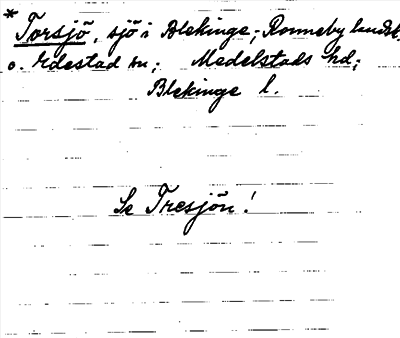 * Torsjö, sjö i Blekinge; Ronneby landsk.
o. Edestad sn; Medelstads hd;
Blekinge l.
Se Tresjön!